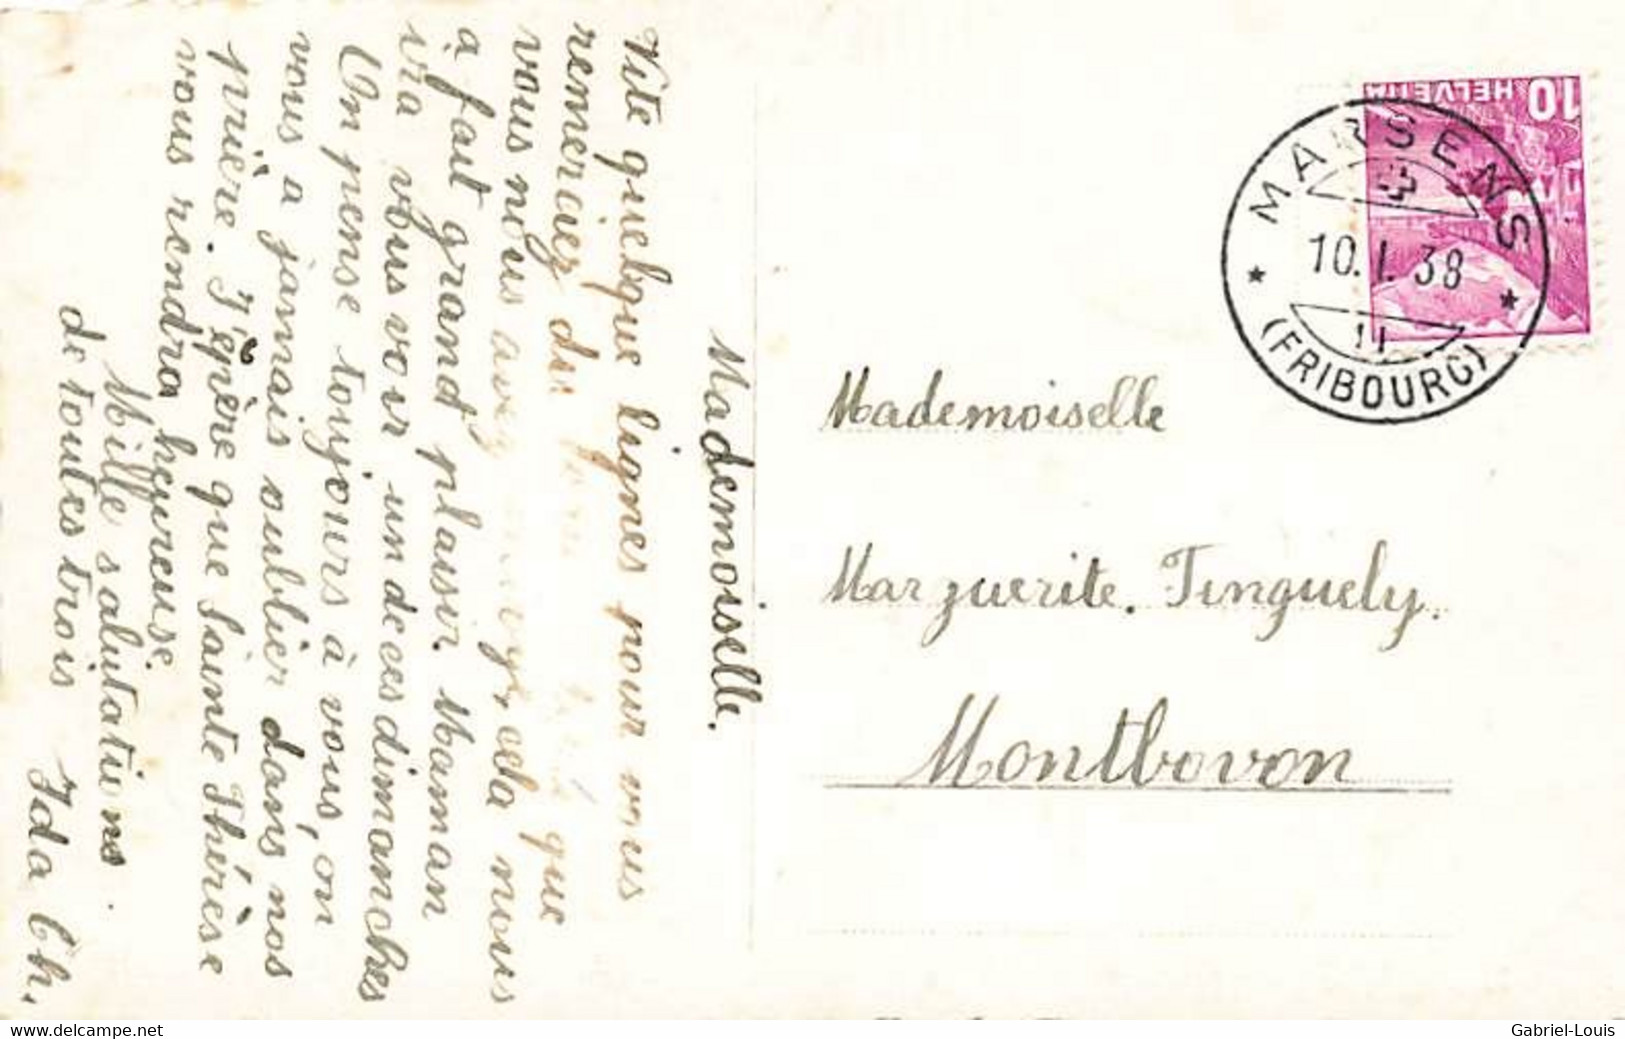 Mademoiselle.
Vite quelque lignes pour vous
remerciez du que
vous nous avez cela nous
a fait grand plaisir. Maman
ira vous voir un de ces dimanches
On pense toujours à vous, on
vous a jamais oublier dans nos
prière. J'épère que Sainte Thérèse
vous rendra heureuse.
Mille salutations.
de toutes trois Ida Ch.
HELVETIA 10
MARSENS
10.I.38
11
(FRIBOURG)
Mademoiselle
Marguerite. Tinguely.
Montbovon
www.delcampe.net
Gabriel-Louis